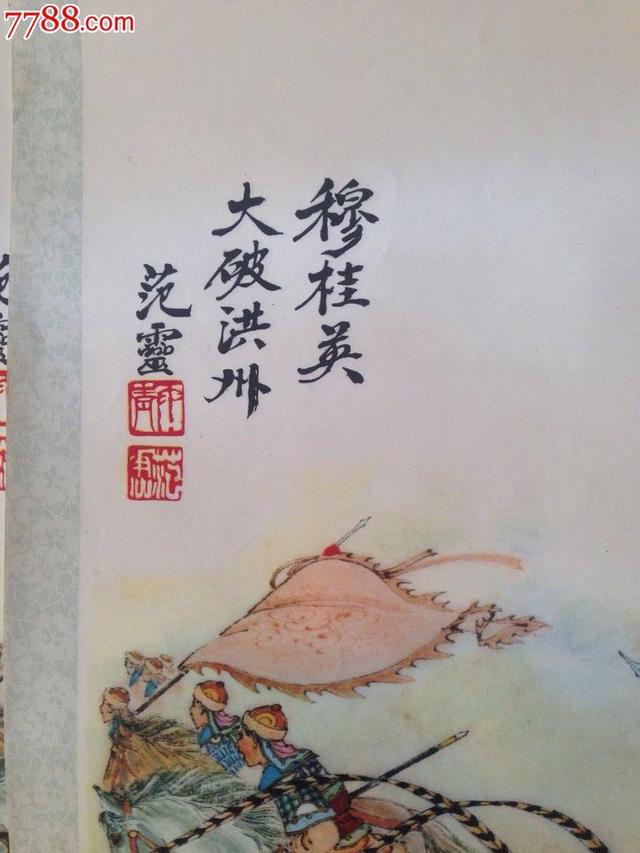 7788.com
穆桂英
大破洪州
范靈